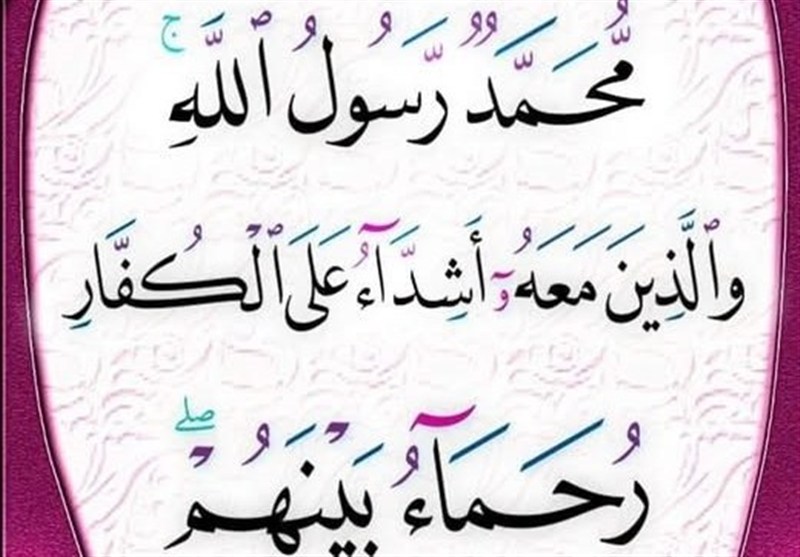 مُّحَمَّدٌ رَّسُولُ ٱللَّهِ ۚ
وَٱلَّذِينَ مَعَهُۥٓ أَشِدَّآءُ عَلَى ٱلْكُفَّارِ
رُحَمَآءُ بَيْنَهُمْ ۖ